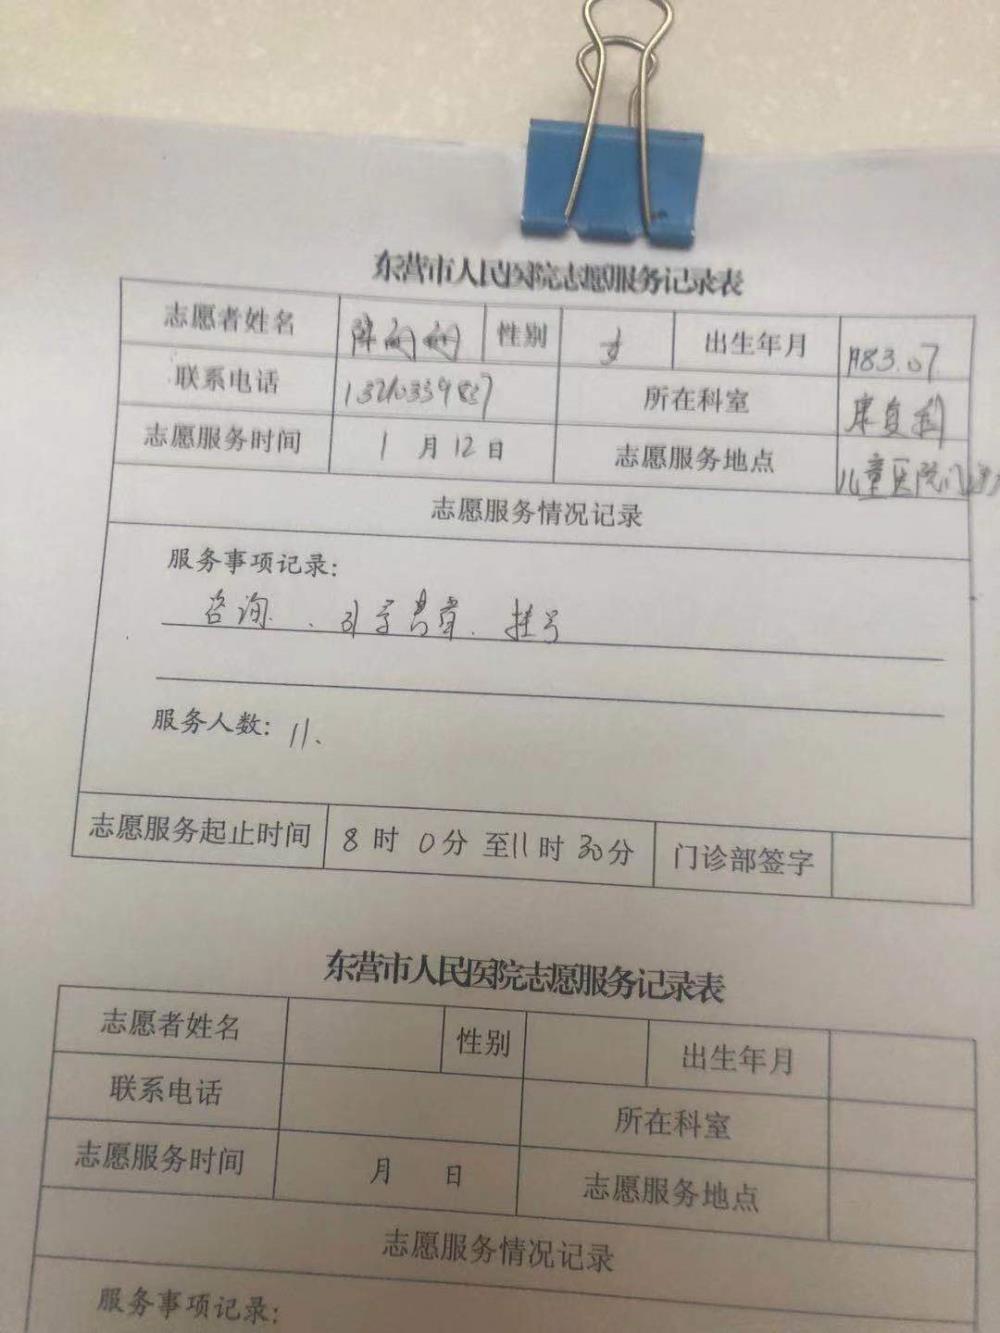 东营市人民医院志愿服务记录表
志愿者姓名 性别 女 出生年月 1983.07
联系电话 13210339837 所在科室 康复科
志愿服务时间 1月12日 志愿服务地点 儿童医院门诊
志愿服务情况记录
服务事项记录:
咨询、引导患者、挂号
服务人数: 11.
志愿服务起止时间 8时0分至11时30分 门诊部签字
东营市人民医院志愿服务记录表
志愿者姓名 性别 出生年月
联系电话 所在科室
志愿服务时间 月 日 志愿服务地点
志愿服务情况记录
服务事项记录: